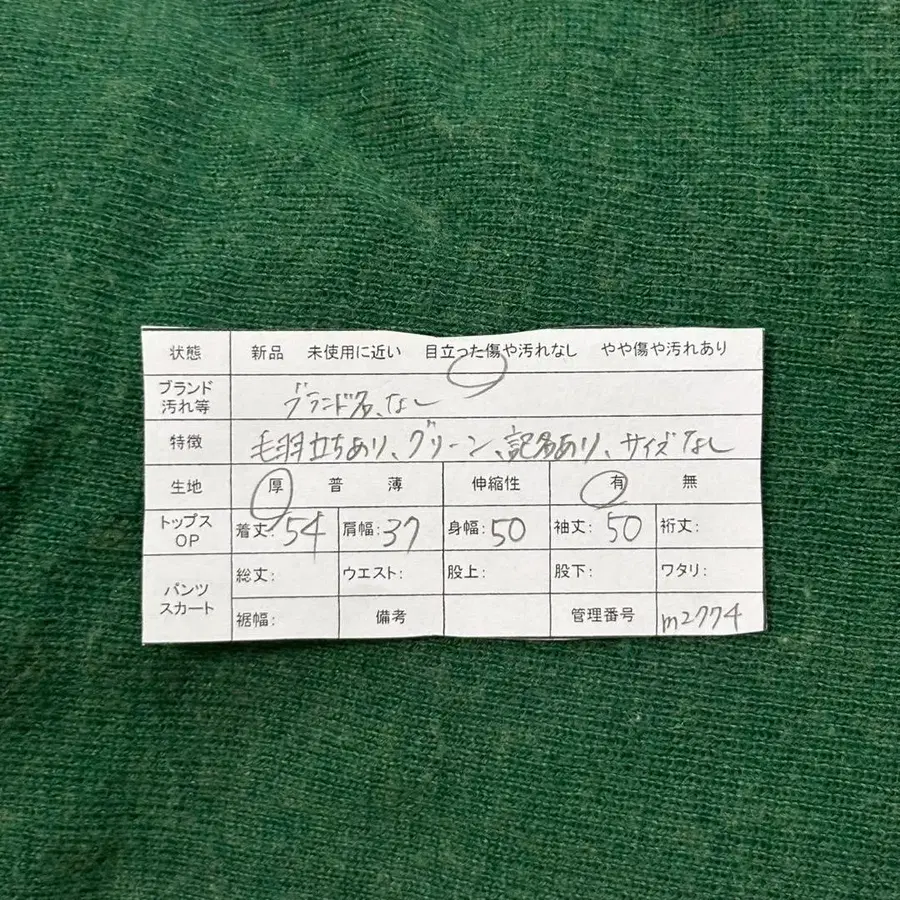 状態 新品 未使用に近い 目立った傷や汚れなし やや傷や汚れあり
ブランド
汚れ等 ブランド名、なし
特徴 毛羽立ちあり、グリーン、記名あり、サイズなし
生地 厚 普 薄 伸縮性 有 無
トップス
OP 着丈:54 肩幅:37 身幅:50 袖丈:50 裄丈:
パンツ
スカート 総丈: ウエスト: 股上: 股下: ワタリ:
裾幅: 備考 管理番号 m2774